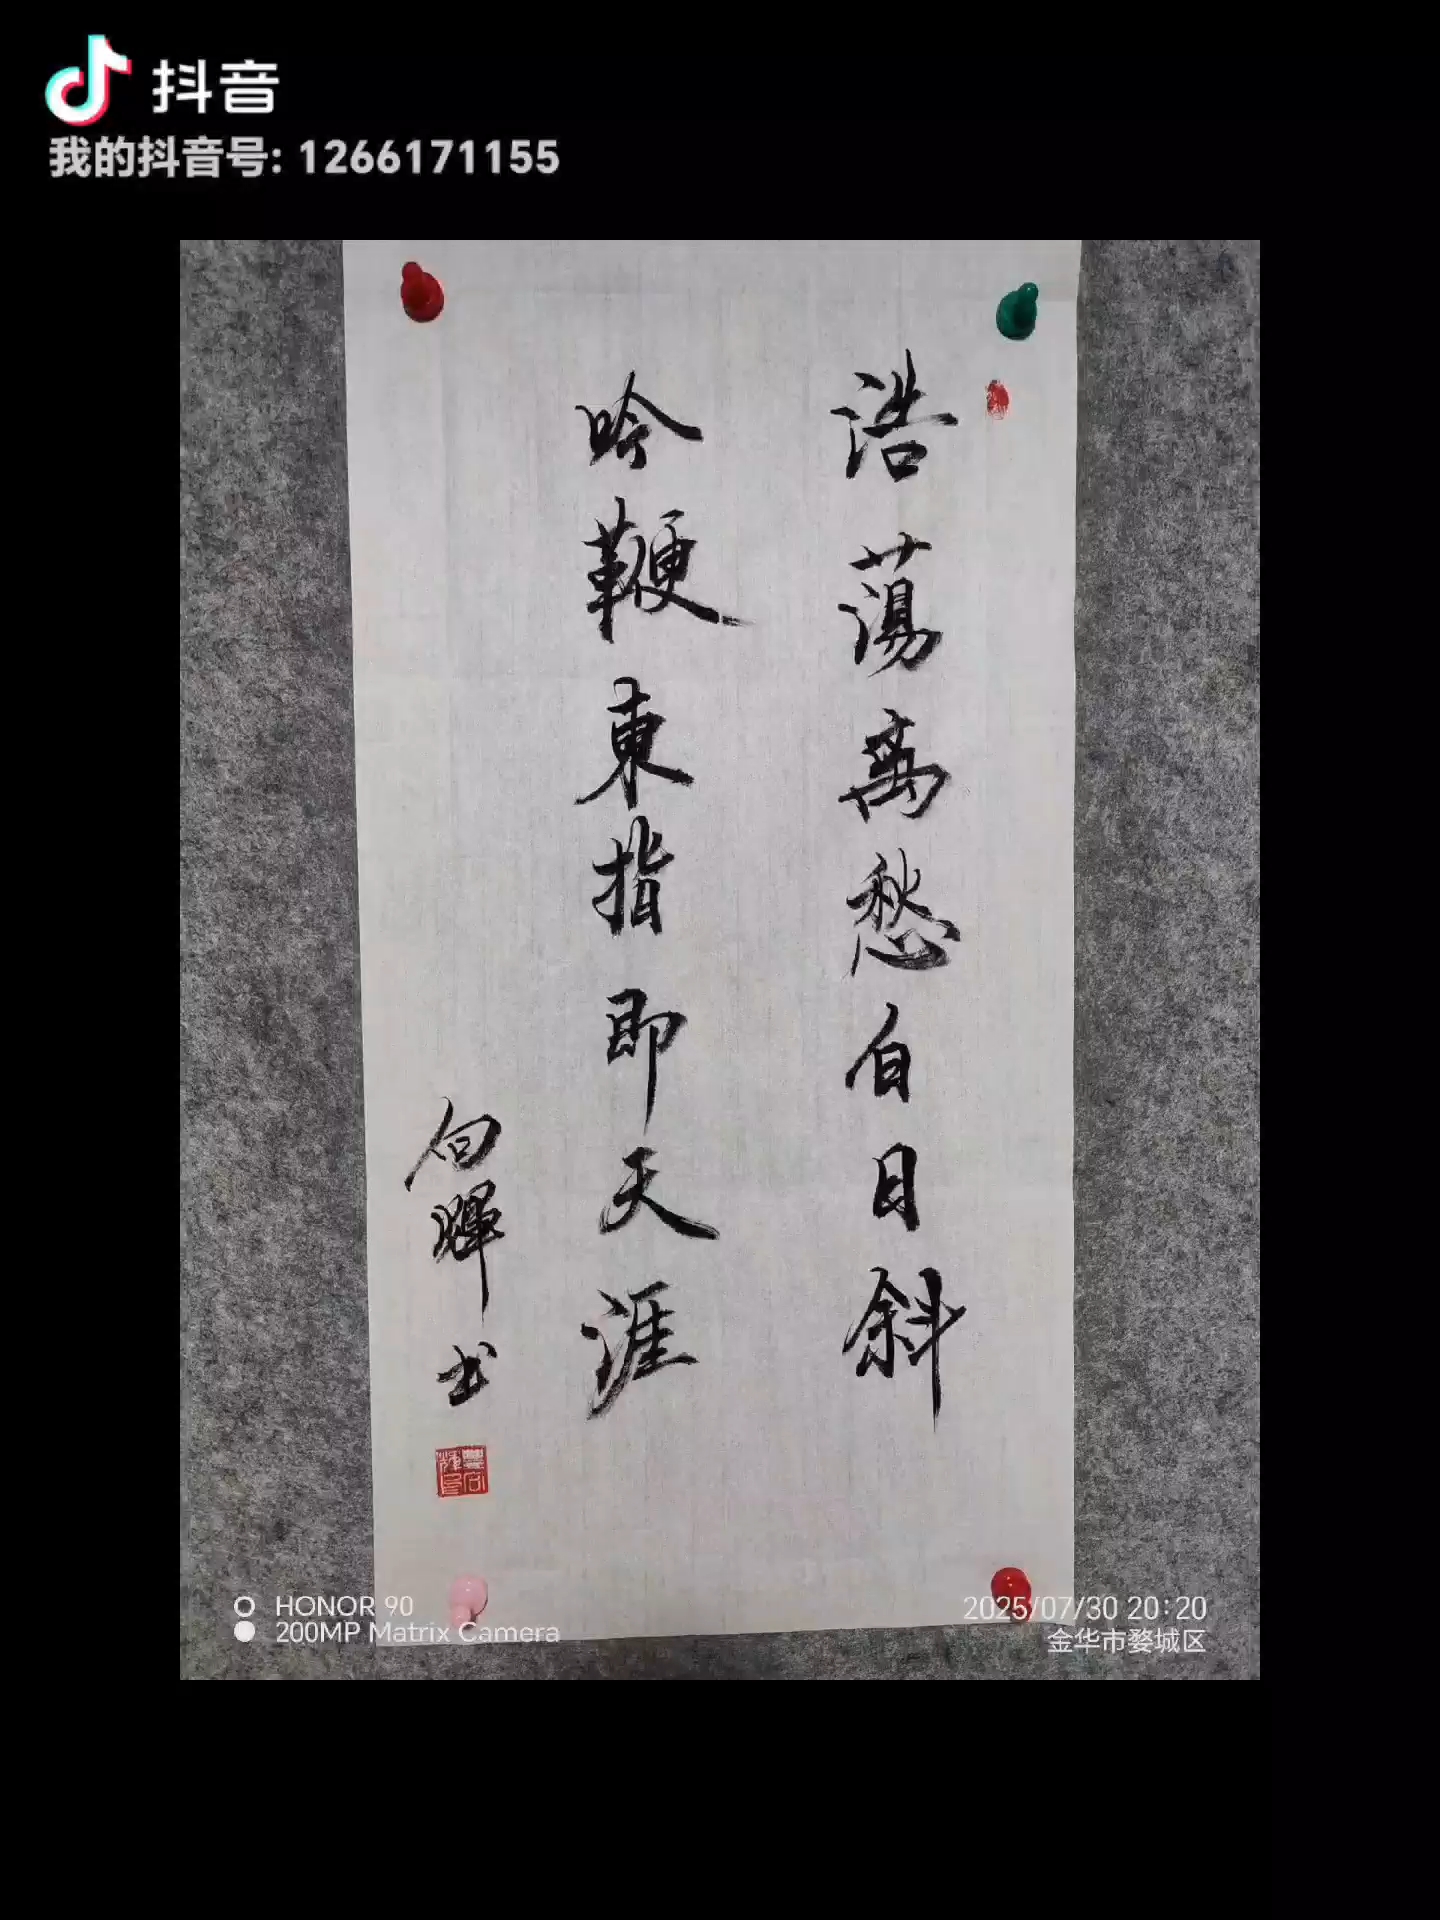 抖音
我的抖音号: 1266171155
浩蕩离愁白日斜
吟鞭東指即天涯
向輝书
HONOR 90
200MP Matrix Camera
2025/07/30 20:20
金华市婺城区